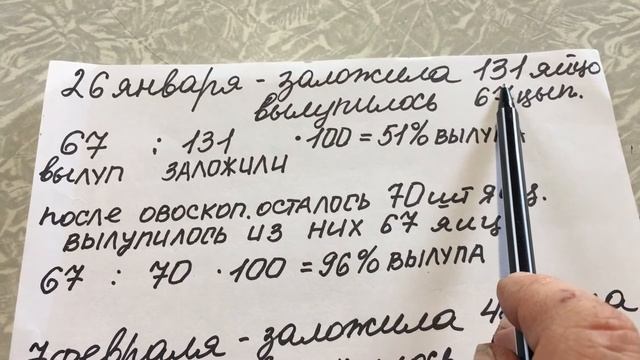 26 января - заложила 131 яйцо
вылупилось 67 цып.
67 : 131 · 100 = 51% вылупа
вылуп заложили
после овоскоп. осталось 70 шт яиц.
вылупилось из них 67 яиц
67 : 70 · 100 = 96% вылупа
7 февраля - заложила